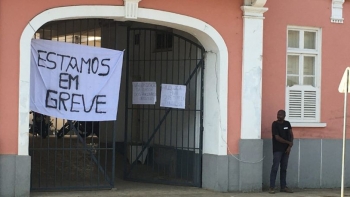 ESTAMOS
EM
GREVE